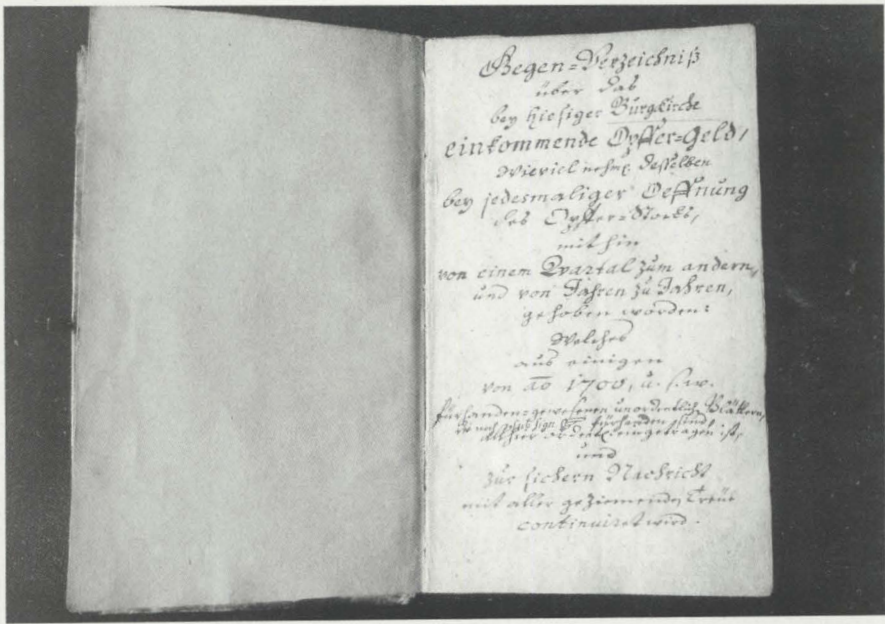 Gegen-Verzeichniß
über das
bey hiesiger Burgkirche
einkommende Opffer-Geld,
wieviel nehml. desselben
bey jedesmaliger Oeffnung
des Opffer-Stocks,
mithin
von einem Quartal zum andern,
und von Jahren zu Jahren,
gehoben worden:
Welches
aus einigen
von ao 1700, u. s. w.
fürhanden-gewesenen unordentlich. Blättern,
die noch fürhanden sind
allhier ordentl. eingetragen ist,
und
zur sichern Nachricht
mit aller geziemenden Treue
continuiret wird.